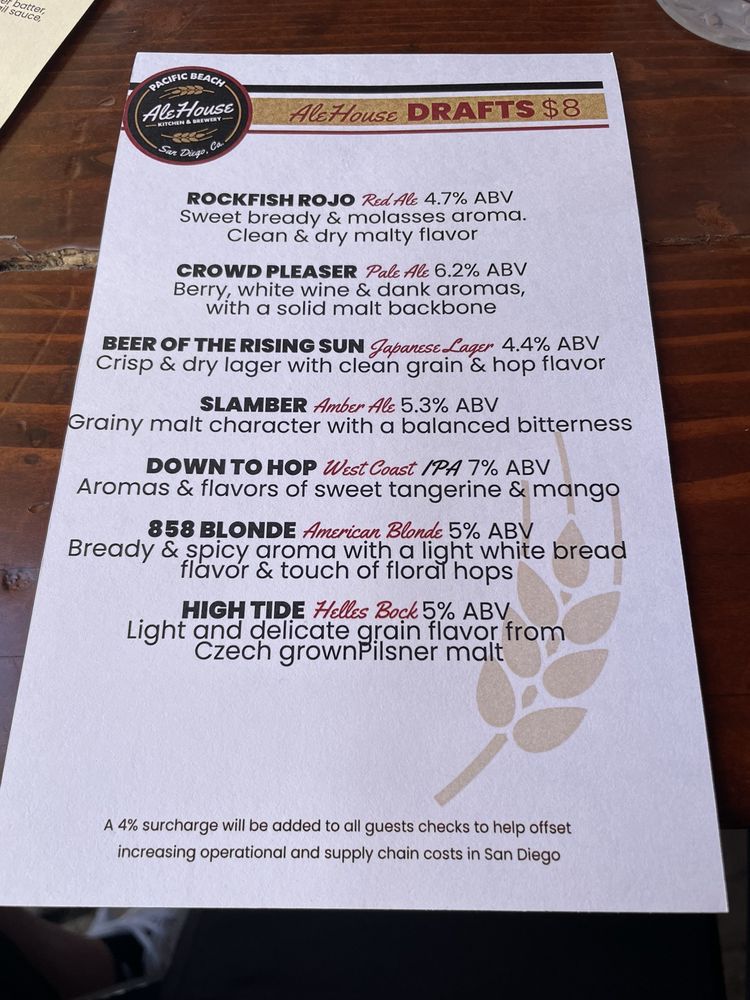 er batter,
ail sauce,
PACIFIC BEACH
AleHouse
KITCHEN & BREWERY
San Diego, Ca.
AleHouse DRAFTS $8
ROCKFISH ROJO Red Ale 4.7% ABV
Sweet bready & molasses aroma.
Clean & dry malty flavor
CROWD PLEASER Pale Ale 6.2% ABV
Berry, white wine & dank aromas,
with a solid malt backbone
BEER OF THE RISING SUN Japanese Lager 4.4% ABV
Crisp & dry lager with clean grain & hop flavor
SLAMBER Amber Ale 5.3% ABV
Grainy malt character with a balanced bitterness
DOWN TO HOP West Coast IPA 7% ABV
Aromas & flavors of sweet tangerine & mango
858 BLONDE American Blonde 5% ABV
Bready & spicy aroma with a light white bread
flavor & touch of floral hops
HIGH TIDE Helles Bock 5% ABV
Light and delicate grain flavor from
Czech grownPilsner malt
A 4% surcharge will be added to all guests checks to help offset
increasing operational and supply chain costs in San Diego